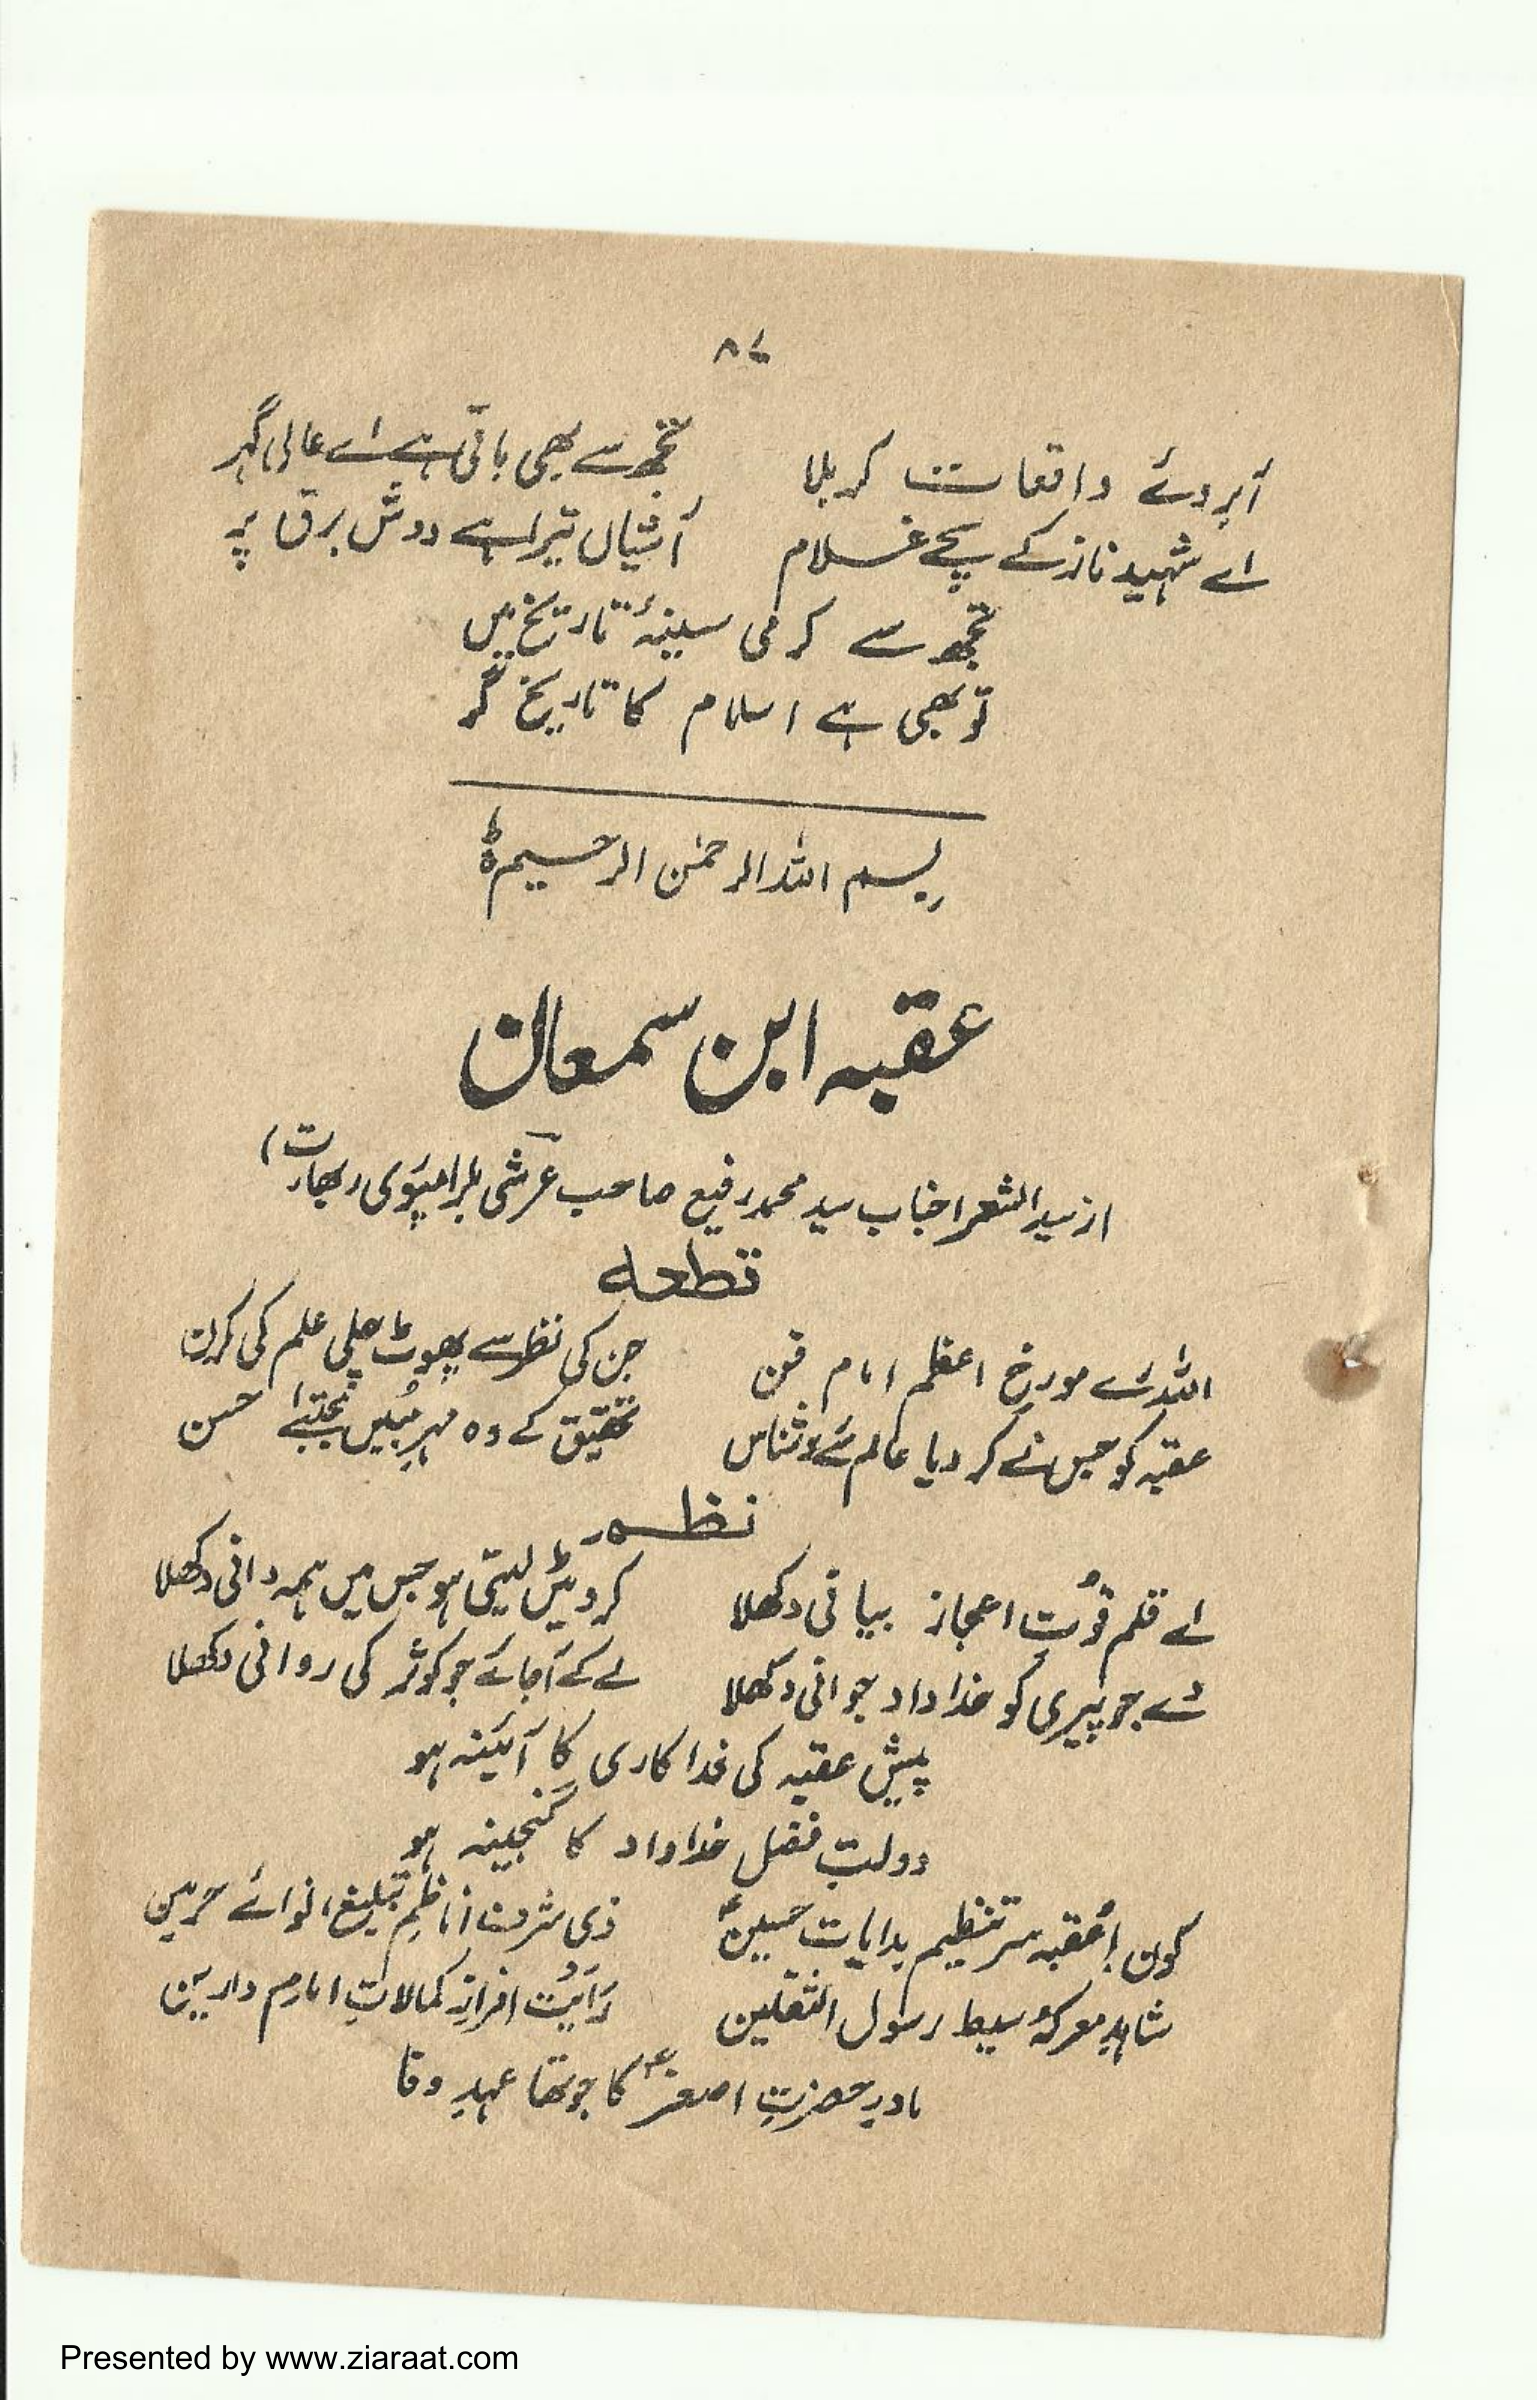 ۸۷
آبروئے واقعات کربلا تجھ سے بھی باقی ہے اے عالی گہر
اے شہید ناز کے سچے غلام آشیاں تیرا ہے دوش برق پر
تجھ سے گرمی سینۂ تاریخ میں
تو بھی ہے اسلام کا تاریخ گر
بسم اللہ الرحمٰن الرحیم ط
عقبہ ابن سمعان
از سید الشعرا جناب سید محمد رفیع صاحب عرشی بلرامپوری (بھارت)
قطعہ
اللہ رے مورخ اعظم امام فن جن کی نظر سے پھوٹ چلی علم کی کرن
عقبہ کو جس نے کر دیا عالم سے روشناس تحقیق کے وہ مہرِ مُبیں مجتبےٰ حسن
نظم
اے قلم قوُتِ اعجاز بیانی دکھلا کروٹیں لیتی ہو جس میں ہمہ دانی دکھلا
دے جو پیری کو خداداد جوانی دکھلا لے کے آجائے جو کوثر کی روانی دکھلا
پیش عقبہ کی فداکاری کا آئینہ ہو
دولتِ فضل خداداد کا گنجینہ ہو
کون؟ عُقبہ سر تنظیم ہدایاتِ حسینؑ ذی شرف ناظمِ تبلیغ نوائے حرمین
شاہدِ معرکۂ سبط رسول الثقلین رَایَت افرازِ کمالاتِ امام دارین
مادرِ حضرتِ اصغرؑ کا جو تھا عہدِ وفا
Presented by www.ziaraat.com